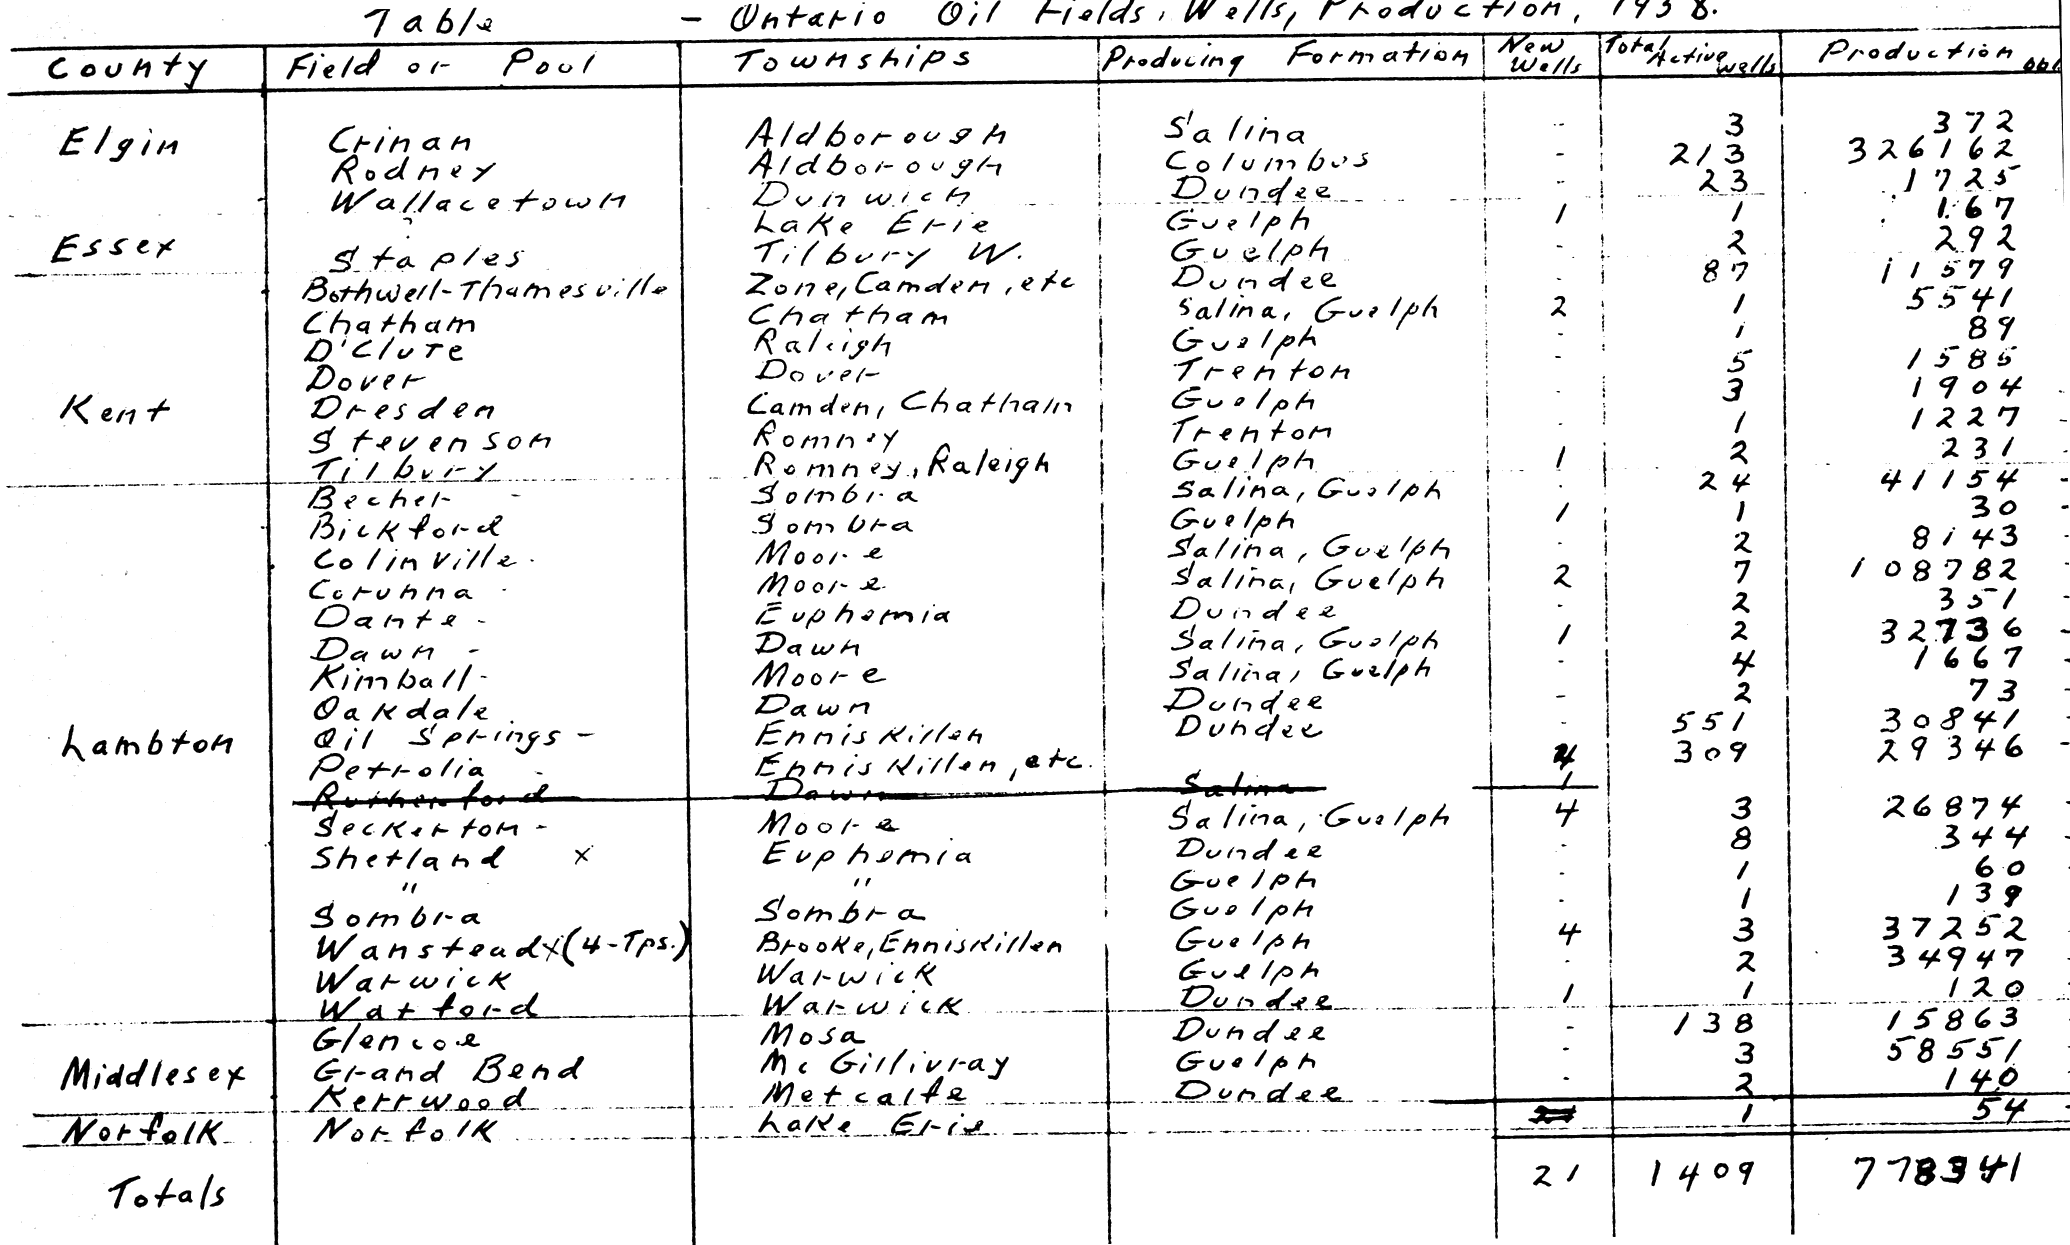 Table - Ontario Oil Fields, Wells, Production, 1958.
County Field or Pool Townships Producing Formation New Wells Total Active Wells Production bbl
Elgin Crinan Aldborough Salina - 3 372
Rodney Aldborough Columbus - 213 326162
Wallacetown Dunwich Dundee - 23 1725
Lake Erie Guelph 1 1 167
Essex Staples Tilbury W. Guelph - 2 292
Bothwell-Thamesville Zone, Camden, etc Dundee - 87 11579
Chatham Chatham Salina, Guelph 2 1 5541
D'Clute Raleigh Guelph - 1 89
Dover Dover Trenton - 5 1585
Kent Dresden Camden, Chatham Guelph - 3 1904
Stevenson Romney Trenton - 1 1227
Tilbury Romney, Raleigh Guelph 1 2 231
Becher - Sombra Salina, Guelph - 24 41154
Bickford Sombra Guelph 1 1 30
Colinville - Moore Salina, Guelph - 2 8143
Corunna - Moore Salina, Guelph 2 7 108782
Dante - Euphemia Dundee - 2 351
Dawn - Dawn Salina, Guelph 1 2 32736
Kimball - Moore Salina, Guelph - 4 1667
Oakdale Dawn Dundee - 2 73
Lambton Oil Springs - Enniskillen Dundee - 551 30841
Petrolia - Enniskillen, etc. 4 309 29346
Rutherford Dawn Salina 1
Seckerton - Moore Salina, Guelph 4 3 26874
Shetland x Euphemia Dundee - 8 344
" " Guelph - 1 60
Sombra Sombra Guelph - 1 139
Wanstead x (4-Tps.) Brooke, Enniskillen Guelph 4 3 37252
Warwick Warwick Guelph - 2 34947
Watford Warwick Dundee 1 1 120
Glencoe Mosa Dundee - 138 15863
Middlesex Grand Bend McGillivray Guelph - 3 58551
Kerrwood Metcalfe Dundee - 2 140
Norfolk Norfolk Lake Erie 1 54
Totals 21 1409 778341